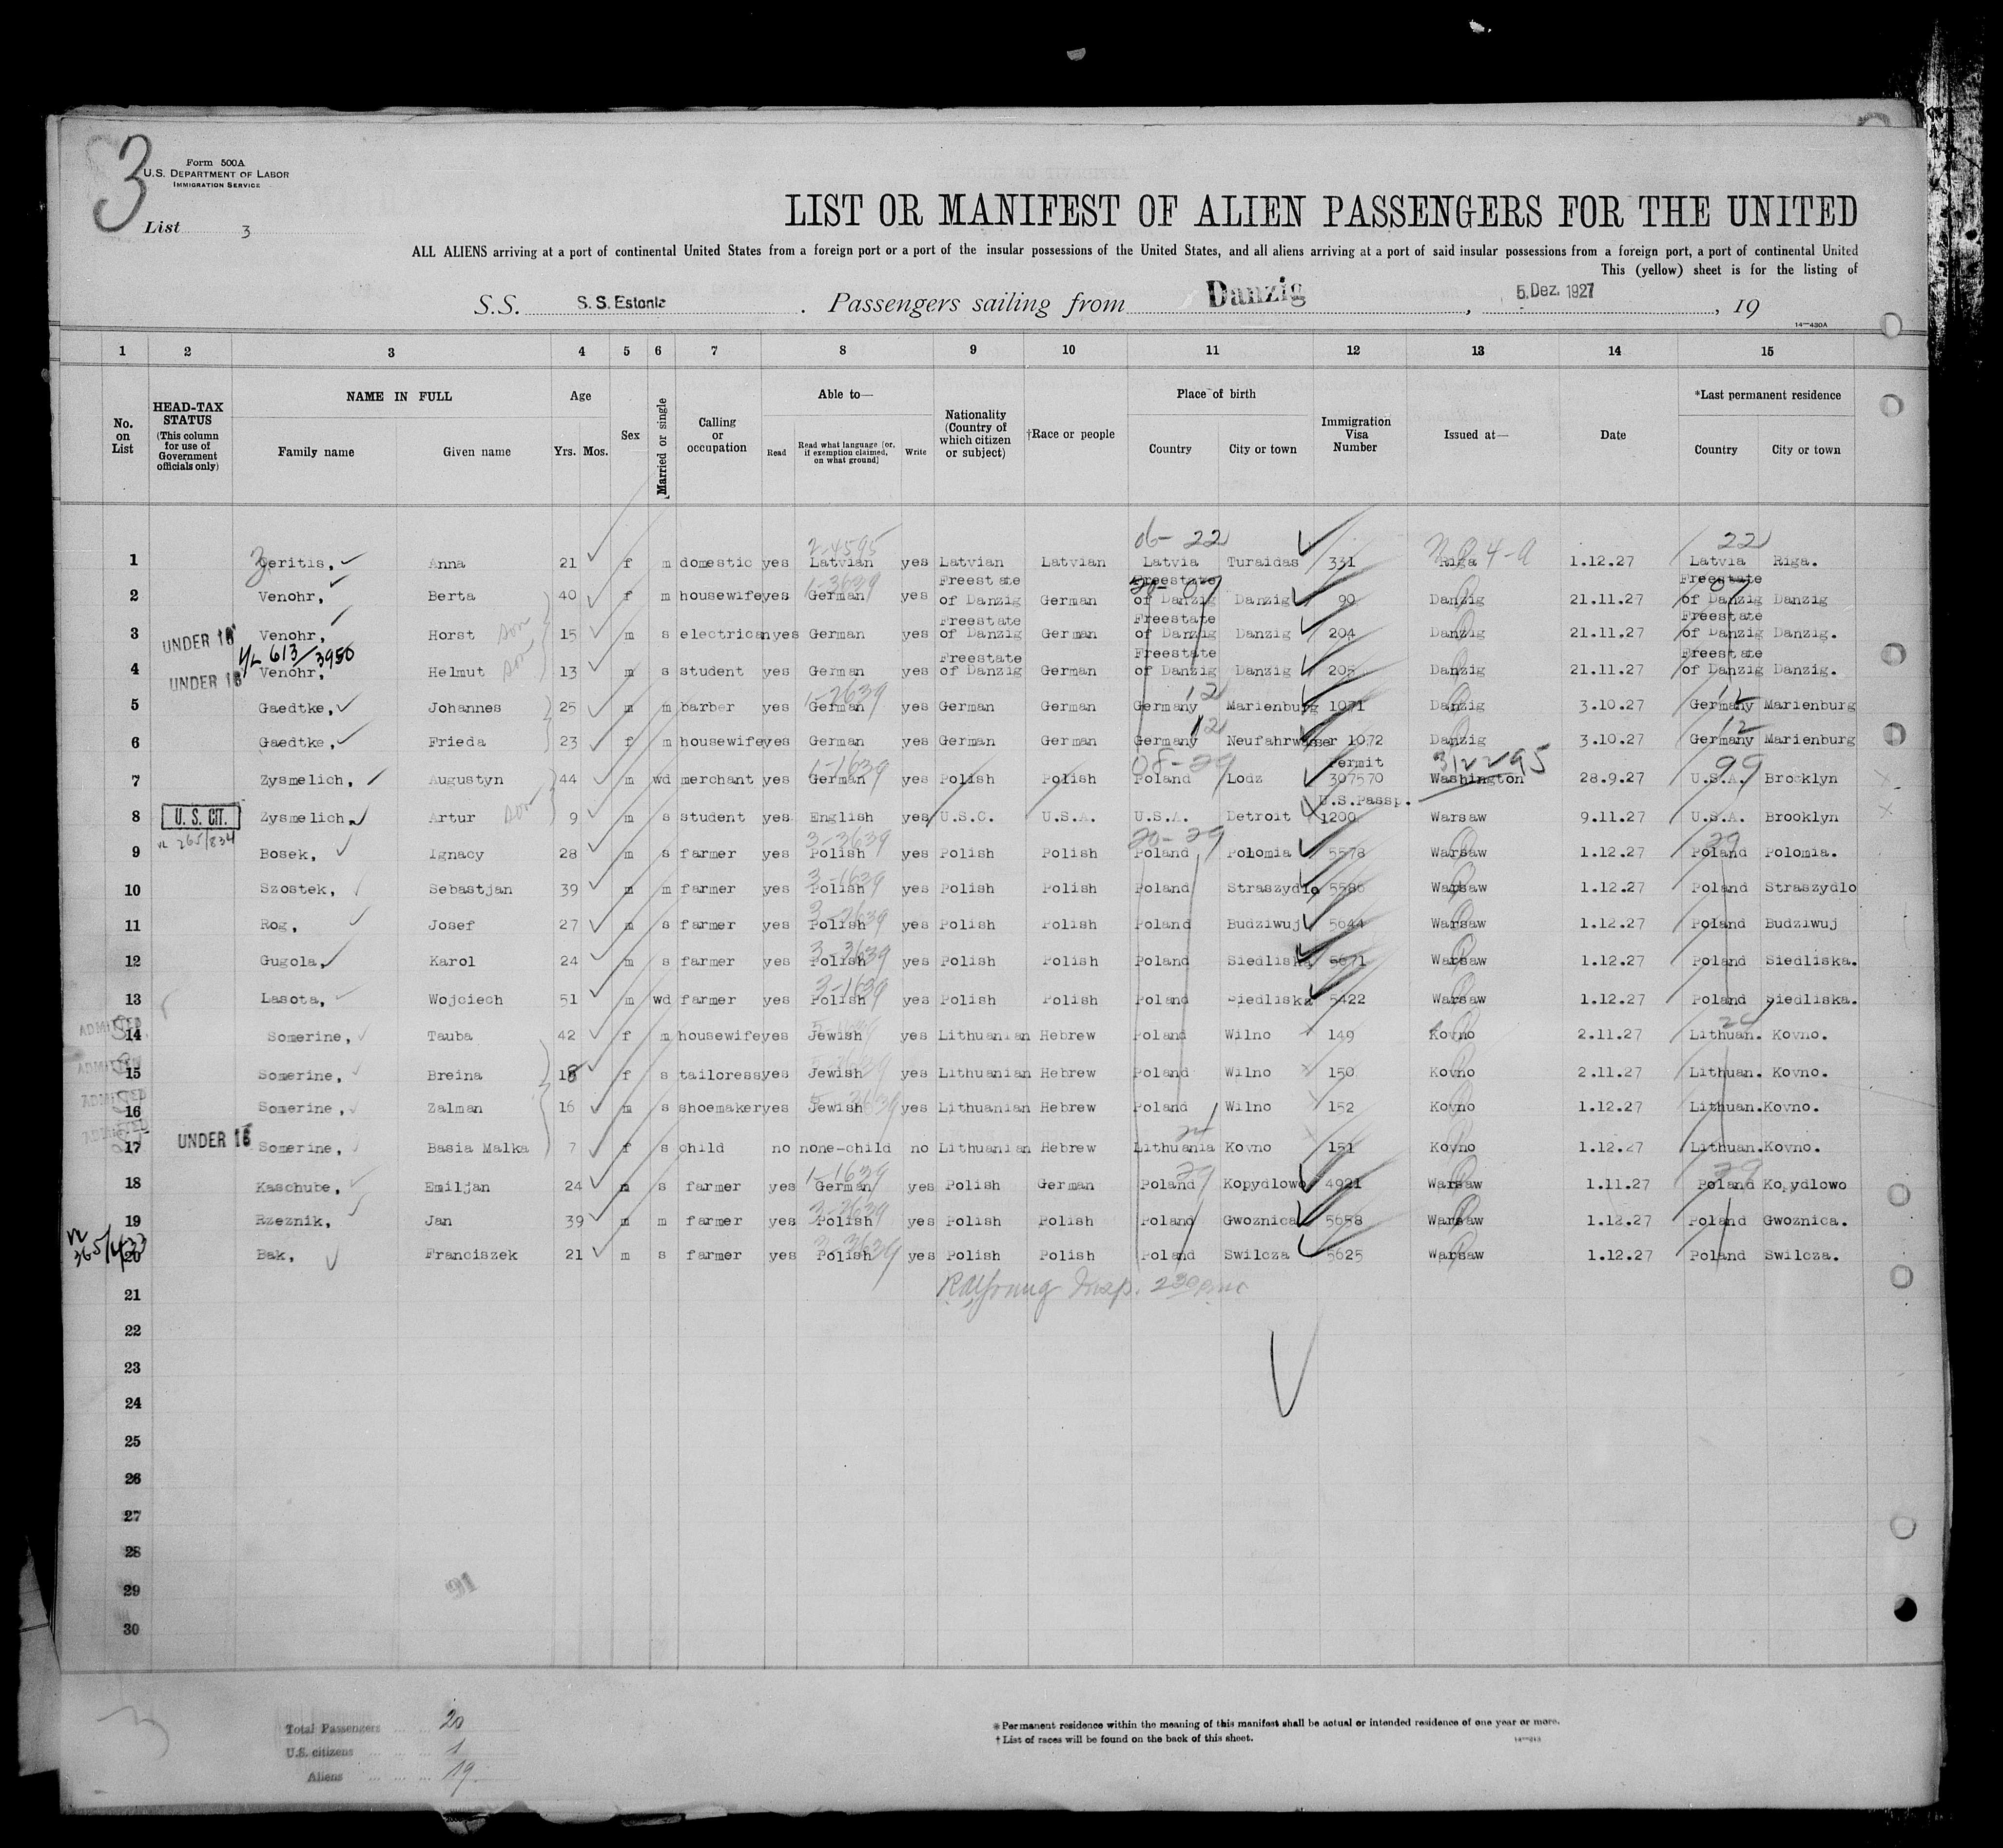 3
Form 500A
U.S. DEPARTMENT OF LABOR
IMMIGRATION SERVICE
List 3
LIST OR MANIFEST OF ALIEN PASSENGERS FOR THE UNITED
ALL ALIENS arriving at a port of continental United States from a foreign port or a port of the insular possessions of the United States, and all aliens arriving at a port of said insular possessions from a foreign port, a port of continental United
This (yellow) sheet is for the listing of
S.S. S.S. Estonia. Passengers sailing from Danzig, 5. Dez. 1927, 19
14—430A
1 2 3 4 5 6 7 8 9 10 11 12 13 14 15
No. on List
HEAD-TAX STATUS (This column for use of Government officials only)
NAME IN FULL Family name Given name
Age Yrs. Mos.
Sex
Married or single
Calling or occupation
Able to— Read Read what language [or, if exemption claimed, on what ground] Write
Nationality (Country of which citizen or subject)
†Race or people
Place of birth Country City or town
Immigration Visa Number
Issued at—
Date
*Last permanent residence Country City or town
06- 22 22
2-4595
1 Zeritis, Anna 21 f m domestic yes Latvian yes Latvian Latvian Latvia Turaidas 331 Riga 1.12.27 Latvia Riga.
1-3639
2 Venohr, Berta 40 f m housewife yes German yes Freestate of Danzig German Freestate of Danzig Danzig 90 Danzig 21.11.27 Freestate of Danzig Danzig
3 UNDER 16 Venohr, Horst son 15 m s electrican yes German yes Freestate of Danzig German Freestate of Danzig Danzig 204 Danzig 21.11.27 Freestate of Danzig Danzig.
V/L 613/3950
4 UNDER 16 Venohr, Helmut son 13 m s student yes German yes Freestate of Danzig German Freestate of Danzig Danzig 205 Danzig 21.11.27 Freestate of Danzig Danzig.
1-2639 12 12
5 Gaedtke, Johannes 25 m m barber yes German yes German German Germany Marienburg 1071 Danzig 3.10.27 Germany Marienburg
12 12
6 Gaedtke, Frieda 23 f m housewife yes German yes German German Germany Neufahrwasser 1072 Danzig 3.10.27 Germany Marienburg
1-1639 08-29 99
7 Zysmelich, Augustyn 44 m wd merchant yes German yes Polish Polish Poland Lodz Permit 307570 Washington 28.9.27 U.S.A. Brooklyn
8 U. S. CIT. Zysmelich Artur son 9 m s student yes English yes U.S.C. U.S.A. U.S.A. Detroit U.S.Passp. 1200 Warsaw 9.11.27 U.S.A. Brooklyn
VL 265/834 3-3639 20-29 29
9 Bosek, Ignacy 28 m s farmer yes Polish yes Polish Polish Poland Polomia 5578 Warsaw 1.12.27 Poland Polomia.
3-1639
10 Szostek, Sebastjan 39 m m farmer yes Polish yes Polish Polish Poland Straszydlo 5586 Warsaw 1.12.27 Poland Straszydlo
3-2639
11 Rog, Josef 27 m s farmer yes Polish yes Polish Polish Poland Budziwuj 5644 Warsaw 1.12.27 Poland Budziwuj
3-3639
12 Gugola, Karol 24 m s farmer yes Polish yes Polish Polish Poland Siedliska 5671 Warsaw 1.12.27 Poland Siedliska.
3-1639
13 Lasota, Wojciech 51 m wd farmer yes Polish yes Polish Polish Poland Siedliska 5422 Warsaw 1.12.27 Poland Siedliska.
ADMITTED
14 Somerine, Tauba 42 f m housewife yes Jewish yes Lithuanian Hebrew Poland Wilno 149 Kovno 2.11.27 Lithuan. Kovno.
ADMITTED
15 Somerine, Breina 18 f s tailoress yes Jewish yes Lithuanian Hebrew Poland Wilno 150 Kovno 2.11.27 Lithuan. Kovno.
ADMITTED
16 Somerine, Zalman 16 m s shoemaker yes Jewish yes Lithuanian Hebrew Poland Wilno 152 Kovno 1.12.27 Lithuan. Kovno.
ADMITTED
17 UNDER 16 Somerine, Basia Malka 7 f s child no none-child no Lithuanian Hebrew Lithuania Kovno 151 Kovno 1.12.27 Lithuan. Kovno.
1-1639 29 29
18 Kaschube, Emiljan 24 m s farmer yes German yes Polish German Poland Kopydlowo 4921 Warsaw 1.11.27 Poland Kopydlowo
3-2639
19 Rzeznik, Jan 39 m m farmer yes Polish yes Polish Polish Poland Gwoznica 5658 Warsaw 1.12.27 Poland Gwoznica.
3-3639
20 Bak, Franciszek 21 m s farmer yes Polish yes Polish Polish Poland Swilcza 5625 Warsaw 1.12.27 Poland Swilcza.
21 Insp.
22
23
24
25
26
27
28
29
30
91
Total Passengers 20
U.S. citizens 1
Aliens 19
* Permanent residence within the meaning of this manifest shall be actual or intended residence of one year or more.
† List of races will be found on the back of this sheet.